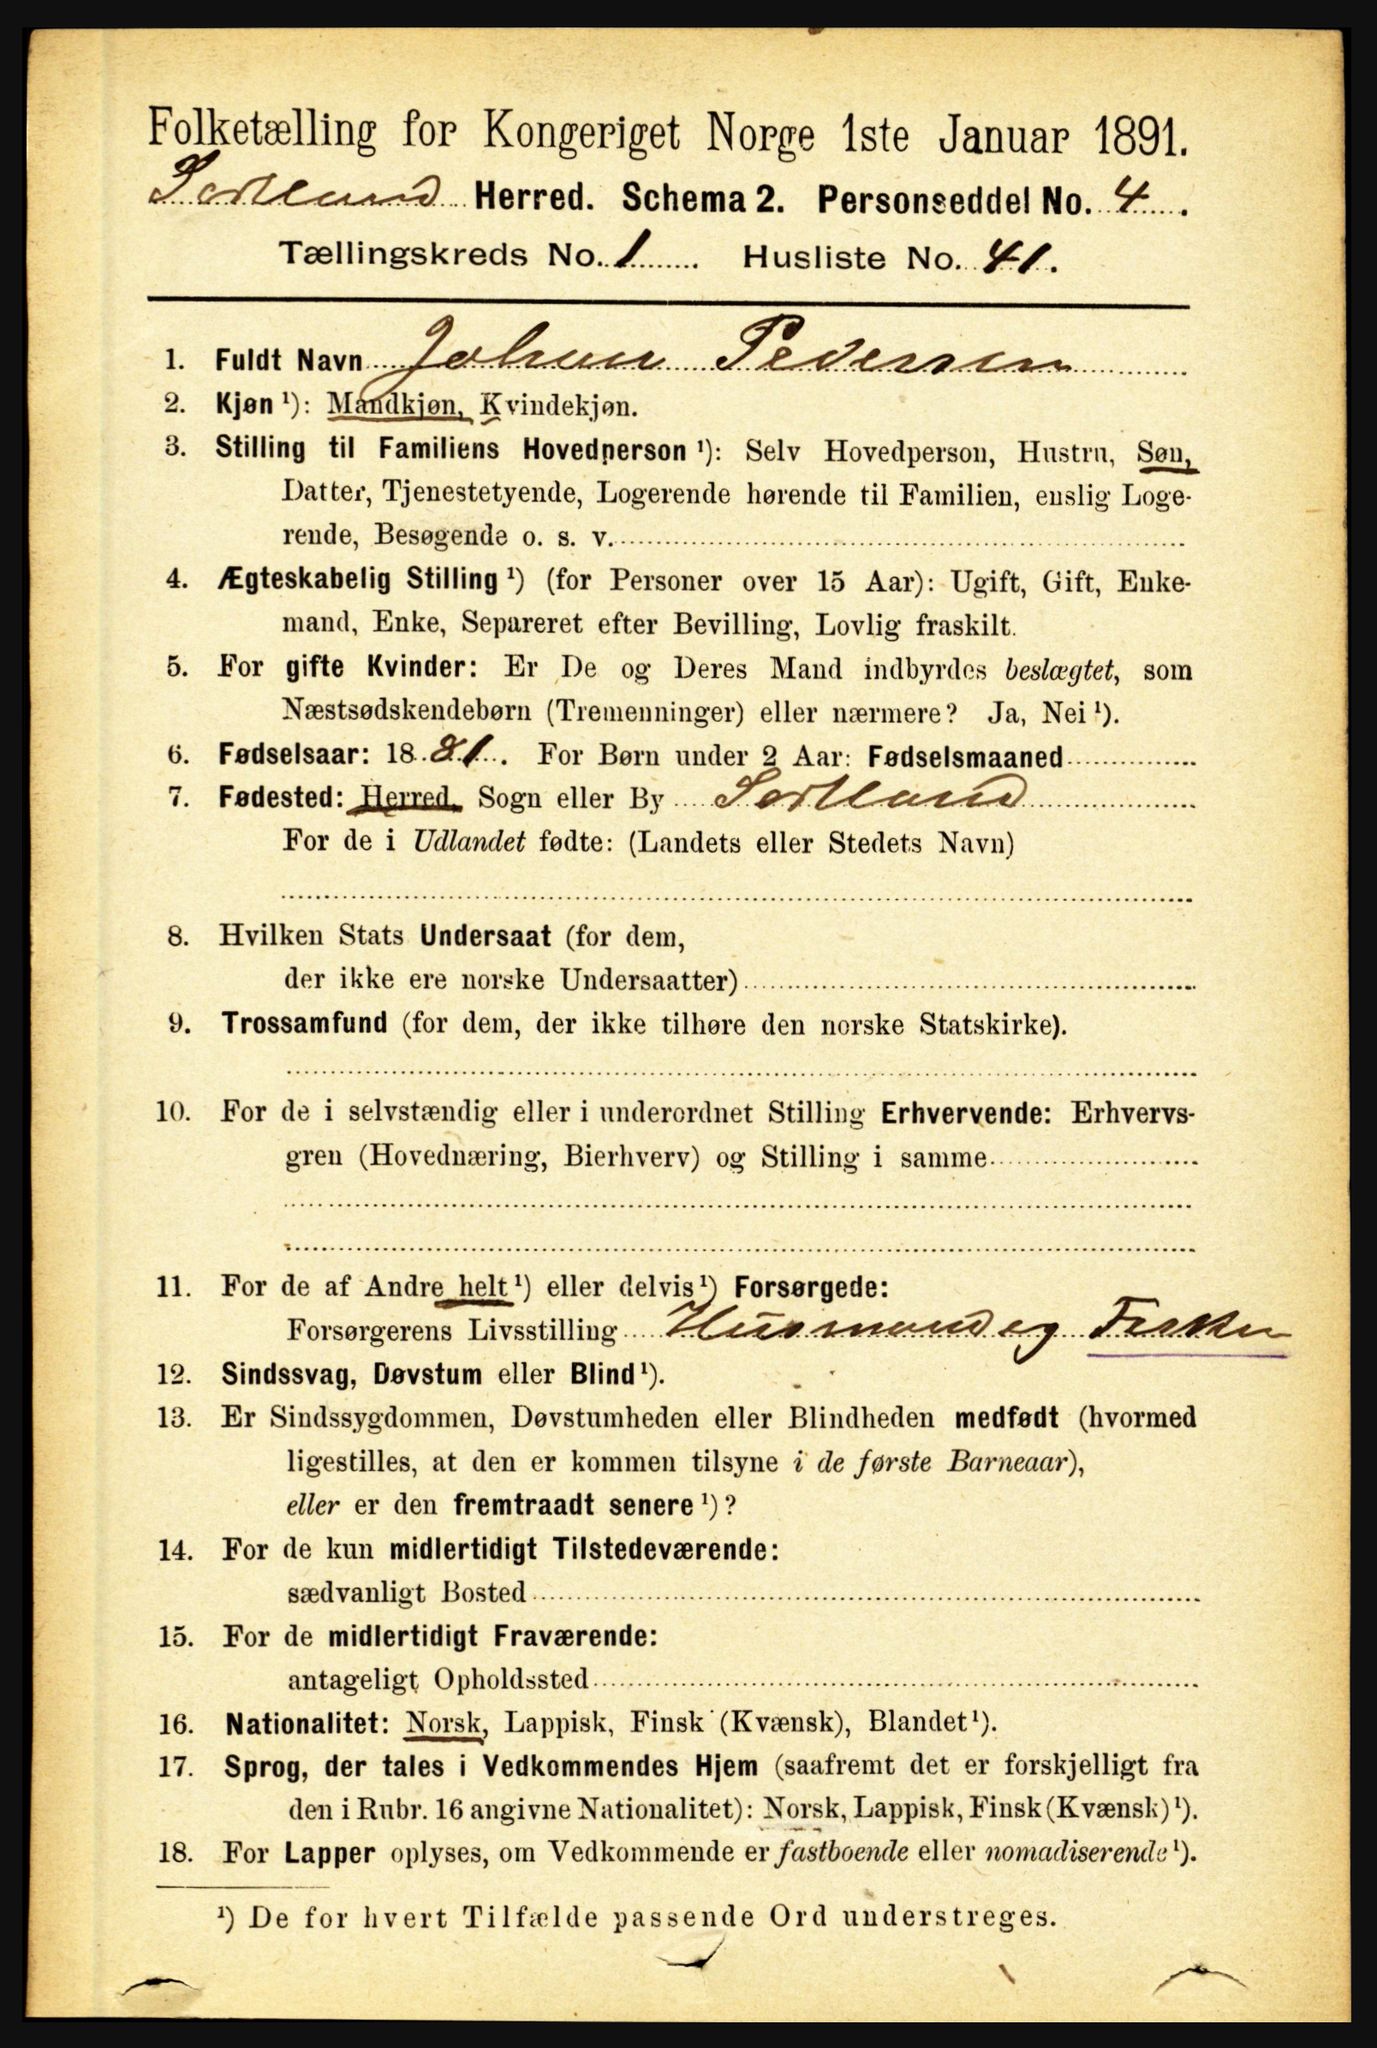 Folketælling for Kongeriget Norge 1ste Januar 1891.
Sortland Herred. Schema 2. Personseddel No. 4.
Tællingskreds No. 1 Husliste No. 41.
1. Fuldt Navn Johan Pedersen
2. Kjøn ¹): Mandkjøn, Kvindekjøn.
3. Stilling til Familiens Hovedperson ¹): Selv Hovedperson, Hustru, Søn,
Datter, Tjenestetyende, Logerende hørende til Familien, enslig Loge-
rende, Besøgende o. s. v.
4. Ægteskabelig Stilling ¹) (for Personer over 15 Aar): Ugift, Gift, Enke-
mand, Enke, Separeret efter Bevilling, Lovlig fraskilt.
5. For gifte Kvinder: Er De og Deres Mand indbyrdes beslægtet, som
Næstsødskendebørn (Tremenninger) eller nærmere? Ja, Nei ¹).
6. Fødselsaar: 1881. For Børn under 2 Aar: Fødselsmaaned
7. Fødested: Herred, Sogn eller By Sortland
For de i Udlandet fødte: (Landets eller Stedets Navn)
8. Hvilken Stats Undersaat (for dem,
der ikke ere norske Undersaatter)
9. Trossamfund (for dem, der ikke tilhøre den norske Statskirke).
10. For de i selvstændig eller i underordnet Stilling Erhvervende: Erhvervs-
gren (Hovednæring, Bierhverv) og Stilling i samme
11. For de af Andre helt ¹) eller delvis ¹) Forsørgede:
Forsørgerens Livsstilling Husmand og Fisker
12. Sindssvag, Døvstum eller Blind ¹).
13. Er Sindssygdommen, Døvstumheden eller Blindheden medfødt (hvormed
ligestilles, at den er kommen tilsyne i de første Barneaar),
eller er den fremtraadt senere ¹)?
14. For de kun midlertidigt Tilstedeværende:
sædvanligt Bosted
15. For de midlertidigt Fraværende:
antageligt Opholdssted
16. Nationalitet: Norsk, Lappisk, Finsk (Kvænsk), Blandet ¹).
17. Sprog, der tales i Vedkommendes Hjem (saafremt det er forskjelligt fra
den i Rubr. 16 angivne Nationalitet): Norsk, Lappisk, Finsk (Kvænsk) ¹).
18. For Lapper oplyses, om Vedkommende er fastboende eller nomadiserende ¹).
¹) De for hvert Tilfælde passende Ord understreges.